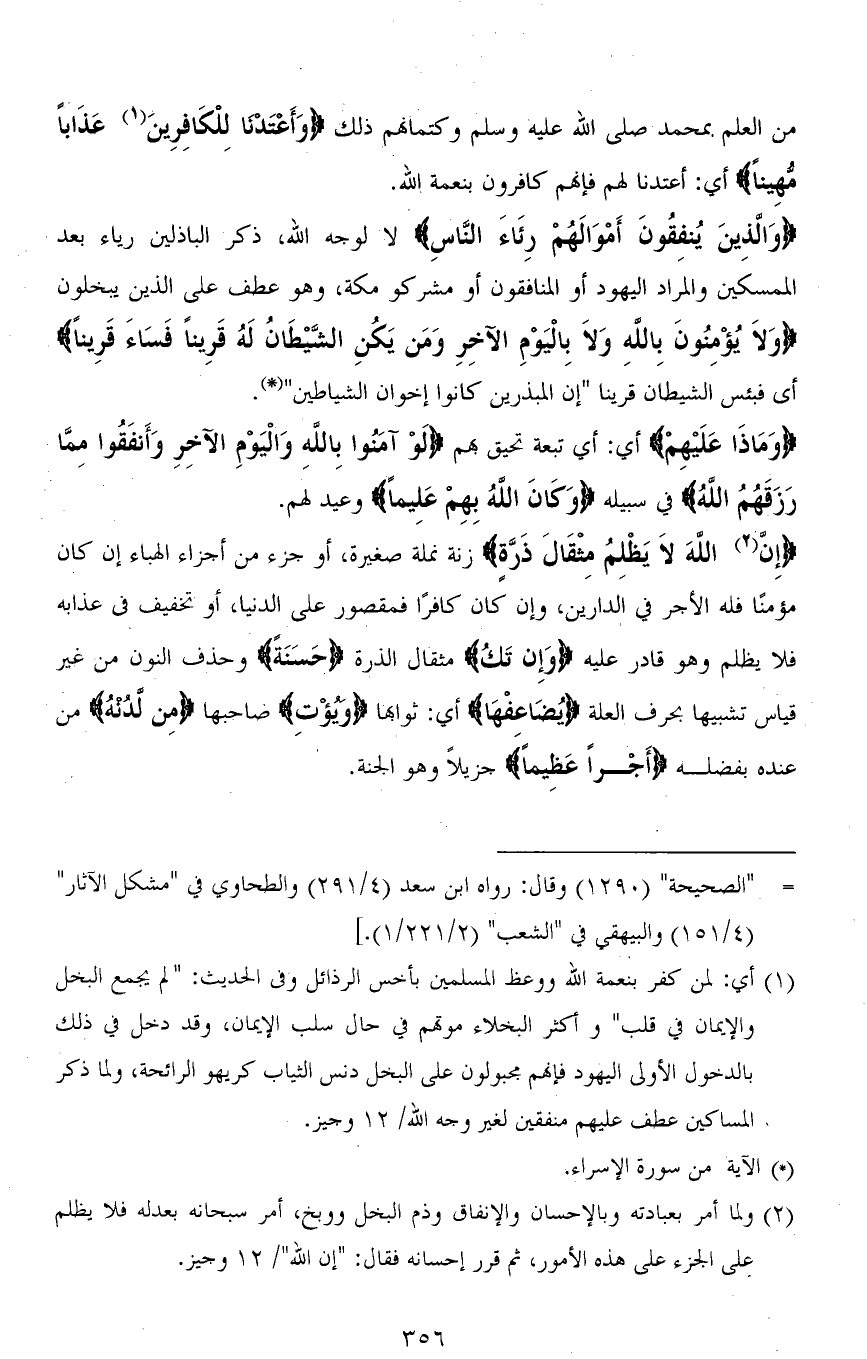 من العلم بمحمد صلى الله عليه وسلم وكتمانهم ذلك ﴿وَأَعْتَدْنَا لِلْكَافِرِينَ(١) عَذَاباً
مُّهِيناً﴾ أي: أعتدنا لهم فإنهم كافرون بنعمة الله.
﴿وَالَّذِينَ يُنفِقُونَ أَمْوَالَهُمْ رِئَاءَ النَّاسِ﴾ لا لوجه الله، ذكر الباذلين رياء بعد
الممسكين والمراد اليهود أو المنافقون أو مشركو مكة، وهو عطف على الذين يبخلون
﴿وَلاَ يُؤْمِنُونَ بِاللَّهِ وَلاَ بِالْيَوْمِ الآخِرِ وَمَن يَكُنِ الشَّيْطَانُ لَهُ قَرِيناً فَسَاءَ قَرِيناً﴾
أى فبئس الشيطان قرينا "إن المبذرين كانوا إخوان الشياطين"(*).
﴿وَمَاذَا عَلَيْهِمْ﴾ أي: أي تبعة تحيق بهم ﴿لَوْ آمَنُوا بِاللَّهِ وَالْيَوْمِ الآخِرِ وَأَنفَقُوا مِمَّا
رَزَقَهُمُ اللَّهُ﴾ في سبيله ﴿وَكَانَ اللَّهُ بِهِمْ عَلِيماً﴾ وعيد لهم.
﴿إِنَّ(٢) اللَّهَ لاَ يَظْلِمُ مِثْقَالَ ذَرَّةٍ﴾ زنة نملة صغيرة، أو جزء من أجزاء الهباء إن كان
مؤمنًا فله الأجر في الدارين، وإن كان كافرًا فمقصور على الدنيا، أو تخفيف فى عذابه
فلا يظلم وهو قادر عليه ﴿وَإِن تَكُ﴾ مثقال الذرة ﴿حَسَنَةً﴾ وحذف النون من غير
قياس تشبيها بحرف العلة ﴿يُضَاعِفْهَا﴾ أي: ثوابها ﴿وَيُؤْتِ﴾ صاحبها ﴿مِن لَّدُنْهُ﴾ من
عنده بفضلـــه ﴿أَجْـــراً عَظِيماً﴾ جزيلاً وهو الجنة.
= "الصحيحة" (١٢٩٠) وقال: رواه ابن سعد (٢٩١/٤) والطحاوي في "مشكل الآثار"
(١٥١/٤) والبيهقي في "الشعب" (١/٢٢١/٢).]
(١) أي: لمن كفر بنعمة الله ووعظ المسلمين بأخس الرذائل وفى الحديث: "لم يجمع البخل
والإيمان في قلب" و أكثر البخلاء موتهم في حال سلب الإيمان، وقد دخل في ذلك
بالدخول الأولى اليهود فإنهم مجبولون على البخل دنس الثياب كريهو الرائحة، ولما ذكر
المساكين عطف عليهم منفقين لغير وجه الله/ ١٢ وجيز.
(*) الآية من سورة الإسراء.
(٢) ولما أمر بعبادته وبالإحسان والإنفاق وذم البخل ووبخ، أمر سبحانه بعدله فلا يظلم
على الجزء على هذه الأمور، ثم قرر إحسانه فقال: "إن الله"/ ١٢ وجيز.
٣٥٦